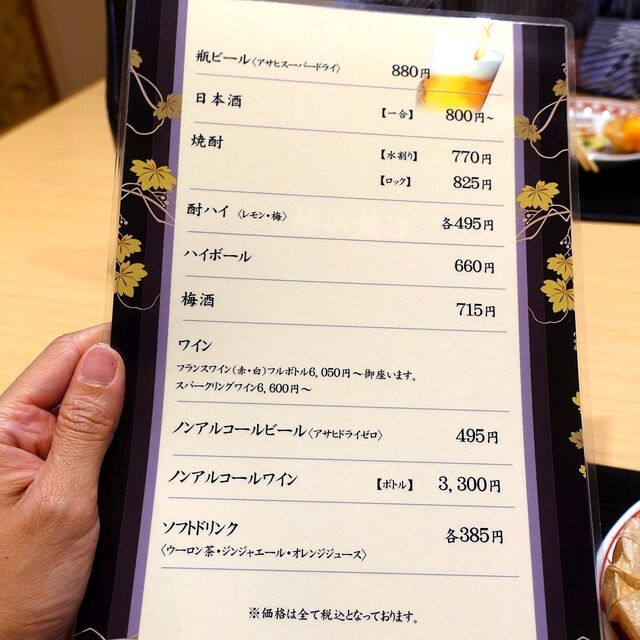 瓶ビール〈アサヒスーパードライ〉 880円
日本酒 【一合】 800円~
焼酎 【水割り】 770円
【ロック】 825円
酎ハイ 〈レモン・梅〉 各495円
ハイボール 660円
梅酒 715円
ワイン
フランスワイン(赤・白)フルボトル6,050円~御座います。
スパークリングワイン6,600円~
ノンアルコールビール〈アサヒドライゼロ〉 495円
ノンアルコールワイン 【ボトル】 3,300円
ソフトドリンク 各385円
〈ウーロン茶・ジンジャエール・オレンジジュース〉
※価格は全て税込となっております。